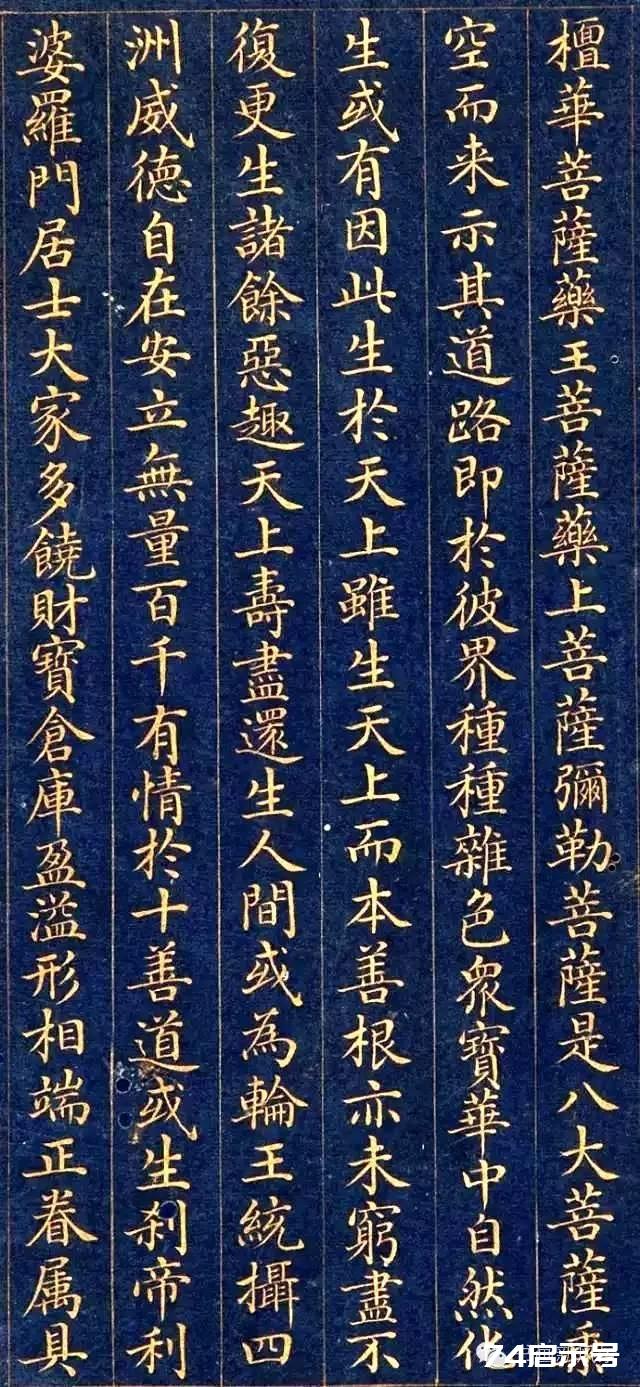 檀華菩薩藥王菩薩藥上菩薩彌勒菩薩是八大菩薩乘
空而来示其道路即於彼界種種雜色眾寶華中自然化
生或有因此生於天上雖生天上而本善根亦未窮盡不
復更生諸餘惡趣天上壽盡還生人間或為輪王統攝四
洲威德自在安立無量百千有情於十善道或生刹帝利
婆羅門居士大家多饒財寶倉庫盈溢形相端正眷属具
74启示号